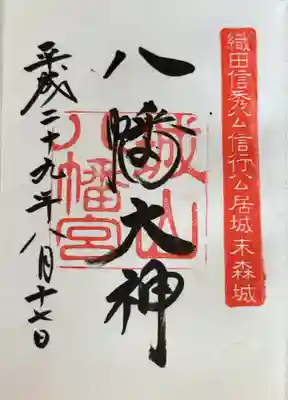 織田信秀公信行公居城末森城
八幡大神
城山
八幡宮
平成二十九年八月十七日